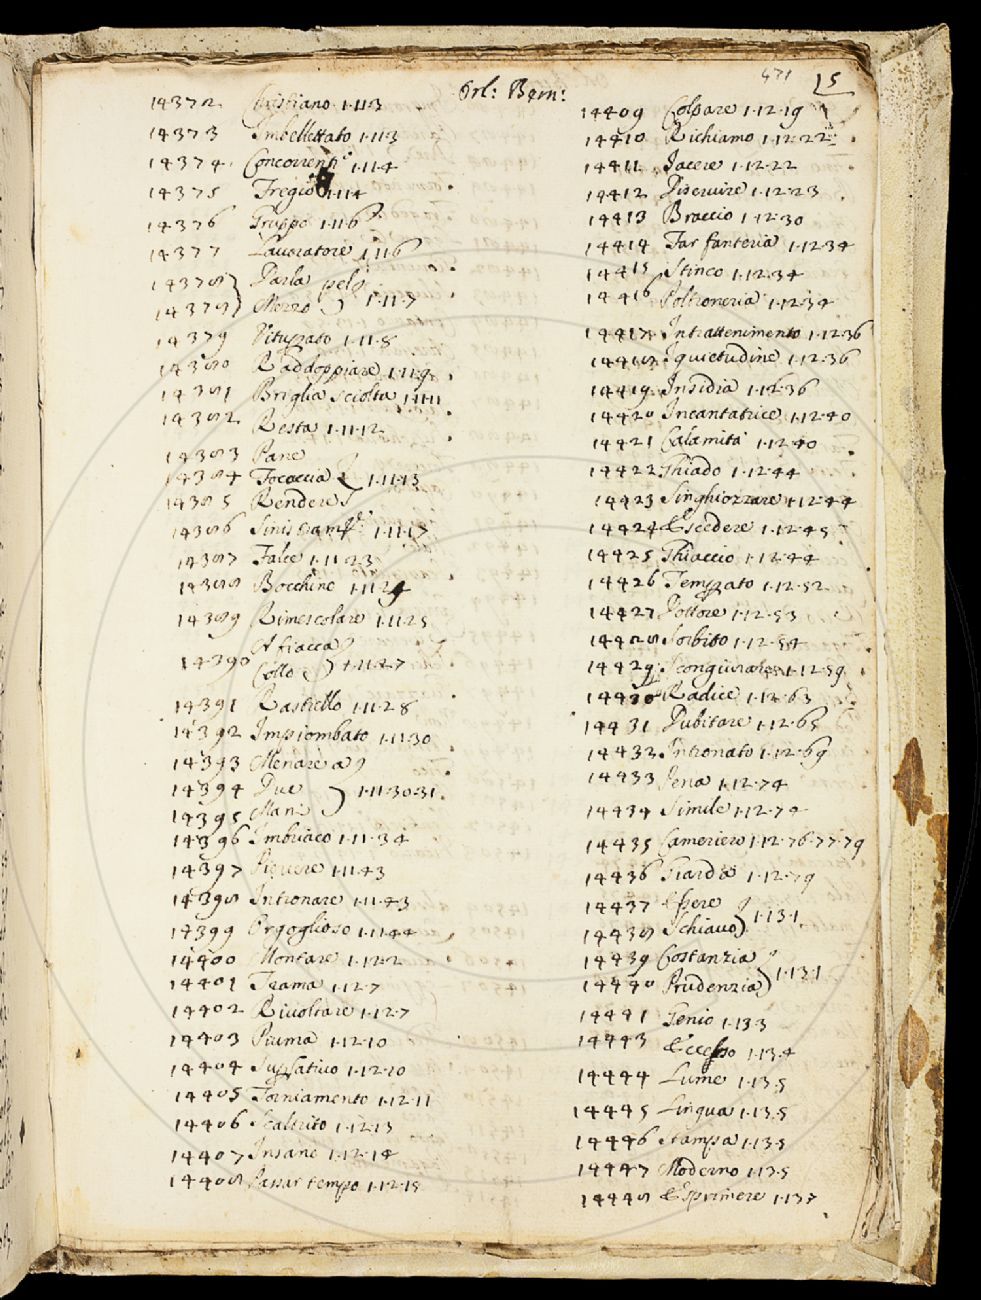 471
15
Orl: Bern:
14372 Cristiano 1·11·3
14373 Imbellettato 1·11·3
14374 Concorrenti 1·11·4
14375 Fregio 1·11·4
14376 Gruppo 1·11·6
14377 Lauoratore 1·11·6
14378 Parla pel
14379 Mezzo 1·11·7
14379 Vituperato 1·11·8
14380 Raddoppiare 1·11·9
14381 Briglia sciolta 1·11·11
14382 Resta 1·11·12
14383 Pane
14384 Focaccia 1·11·13
14385 Rendere
14386 1·11·17
14387 Falce 1·11·23
14388 Bocchino 1·11·24
14389 Rimescolare 1·11·25
Afiacca
14390 Collo 1·11·27
14391 Rastrello 1·11·28
14392 Impiombato 1·11·30
14393 Menare a
14394 Due 1·11·30·31
14395 Mani
14396 Imbriaco 1·11·34
14397 1·11·43
14398 Intronare 1·11·43
14399 Orgoglioso 1·11·44
14400 Montare 1·12·2
14401 Trama 1·12·7
14402 Riuoltare 1·12·7
14403 Piuma 1·12·10
14404 1·12·10
14405 Torniamento 1·12·11
14406 Scaltrito 1·12·13
14407 Insano 1·12·14
14408 Passar tempo 1·12·15
14409 Colpare 1·12·19
14410 Richiamo 1·12·22
14411 Tacere 1·12·22
14412 Diseruire 1·12·23
14413 Braccio 1·12·30
14414 Far fanteria 1·12·34
14415 Stinco 1·12·34
14416 Poltroneria 1·12·34
14417 Intrattenimento 1·12·36
14418 Inquietudine 1·12·36
14419 Insidia 1·12·36
14420 Incantatrice 1·12·40
14421 Calamita 1·12·40
14422 Ghiado 1·12·44
14423 Singhiozzare 1·12·44
14424 Eccedere 1·12·45
14425 Ghiaccio 1·12·44
14426 Temprato 1·12·52
14427 Dottore 1·12·53
14428 Sorbito 1·12·54
14429 Scongiurare 1·12·59
14430 Radice 1·12·63
14431 Dubitare 1·12·65
14433 Intronato 1·12·69
14433 Iena 1·12·74
14434 Simile 1·12·74
14435 Cameriero 1·12·76·77·79
14436 Tarda 1·12·79
14437 Essere
14438 Schiauo 1·13·1
14439 Costanzia
14440 Prudenzia 1·13·1
14441 Genio 1·13·3
14443 Eccesso 1·13·4
14444 Lume 1·13·5
14445 Lingua 1·13·5
14446 Stampa 1·13·5
14447 Moderno 1·13·5
14448 Esprimere 1·13·7